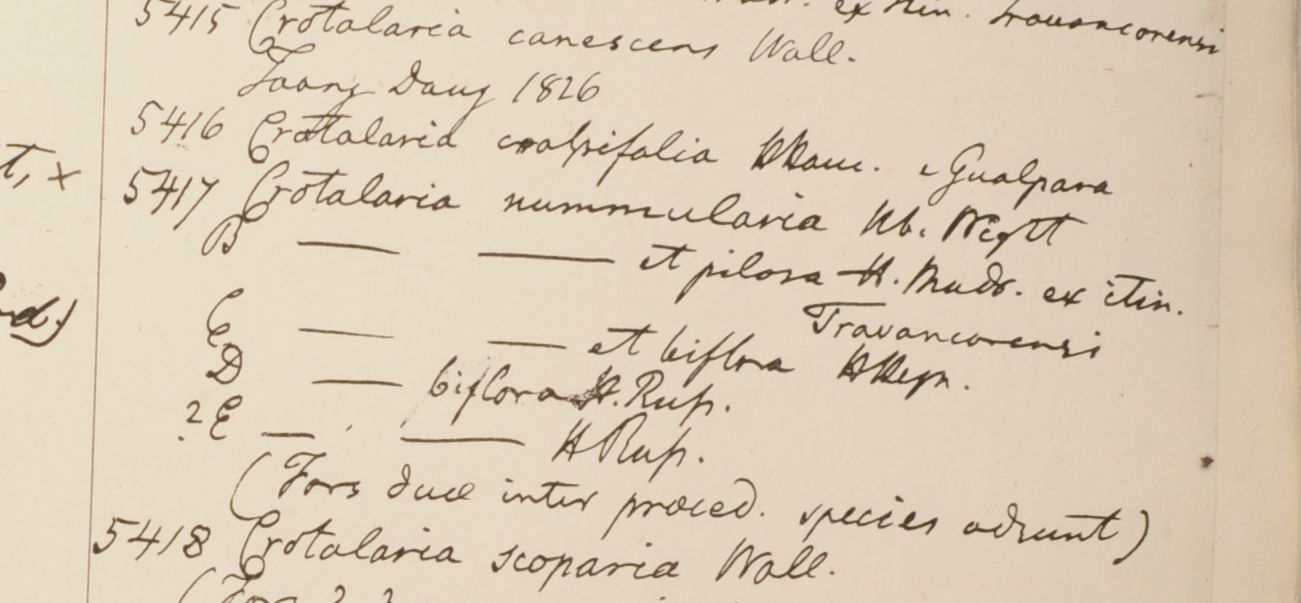 ex itin. Travancorensi
5415 Crotalaria canescens Wall.
Taong Daung 1826
5416 Crotalaria HHam. e Gualpara
t, x
5417 Crotalaria nummularia Hb. Wight
B — — et pilosa H. Madr. ex itin.
Travancorensi
C — — et biflora HHeyn.
D — biflora H. Rup.
? E — — H Rup.
(Fors duæ inter præced. species adsunt)
5418 Crotalaria scoparia Wall.